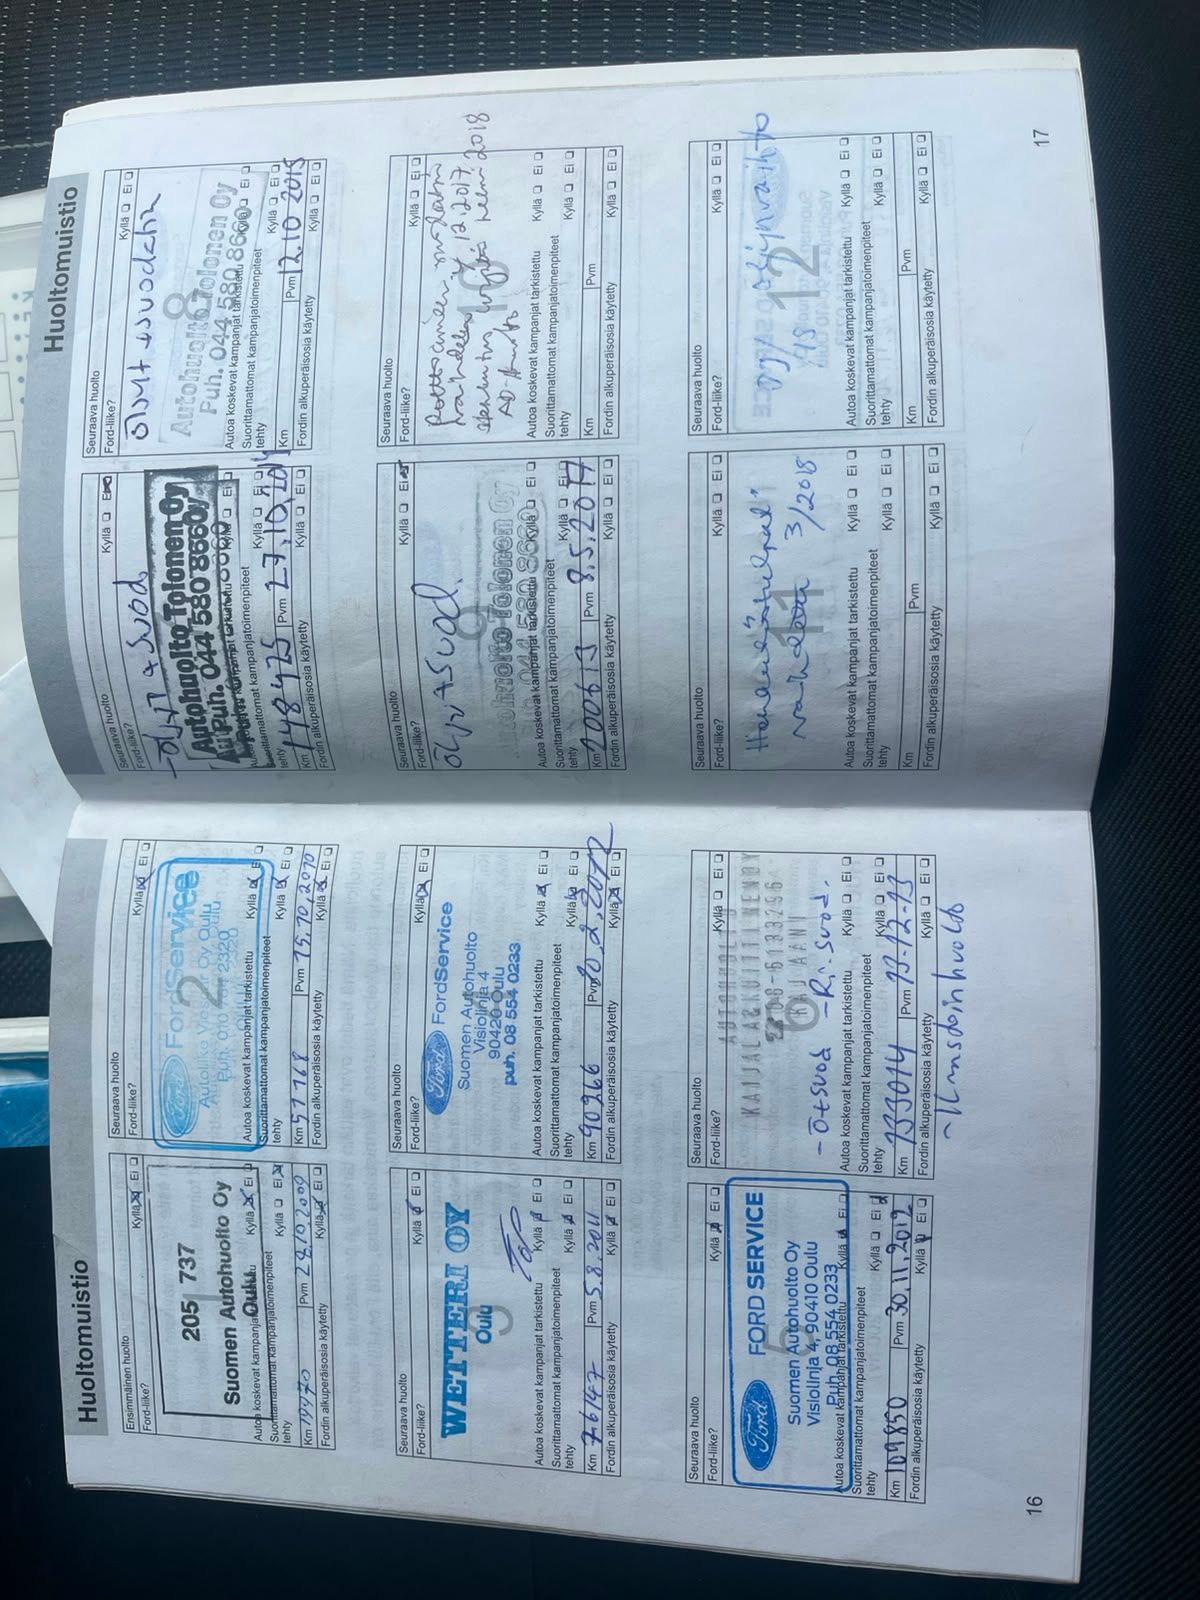 Huoltomuistio
Ensimmäinen huolto
Ford-liike? Kyllä Ei
205 737
Suomen Autohuolto Oy
Oulu
Autoa koskevat kampanjat tarkistettu Kyllä Ei
Suorittamattomat kampanjatoimenpiteet
tehty Kyllä Ei
Km 19970 Pvm 28.10.2009
Fordin alkuperäisosia käytetty Kyllä Ei
Seuraava huolto
Ford-liike? Kyllä Ei
2
Ford FordService
Oulu
Autoa koskevat kampanjat tarkistettu Kyllä Ei
Suorittamattomat kampanjatoimenpiteet
tehty Kyllä Ei
Km 57768 Pvm 15,10,2010
Fordin alkuperäisosia käytetty Kyllä Ei
Seuraava huolto
Ford-liike? Kyllä Ei
WETTERI OY
Oulu
3
Autoa koskevat kampanjat tarkistettu Kyllä Ei
Suorittamattomat kampanjatoimenpiteet
tehty Kyllä Ei
Km 76147 Pvm 5.8.2011
Fordin alkuperäisosia käytetty Kyllä Ei
Seuraava huolto
Ford-liike? Kyllä Ei
Ford FordService
Suomen Autohuolto
Visiolinja 4
90420 Oulu
puh. 08 554 0233
Autoa koskevat kampanjat tarkistettu Kyllä Ei
Suorittamattomat kampanjatoimenpiteet
tehty Kyllä Ei
Km 90266 Pvm
Fordin alkuperäisosia käytetty Kyllä Ei
Seuraava huolto
Ford-liike? Kyllä Ei
Ford FORD SERVICE
Suomen Autohuolto Oy
Visiolinja 4, 90410 Oulu
Puh. 08 554 0233
Autoa koskevat kampanjat tarkistettu Kyllä Ei
Suorittamattomat kampanjatoimenpiteet
tehty Kyllä Ei
Km 109850 Pvm 30,11,2012
Fordin alkuperäisosia käytetty Kyllä Ei
Seuraava huolto
Ford-liike? Kyllä Ei
AUTOHUOLTO
KAJAANI
6
Autoa koskevat kampanjat tarkistettu Kyllä Ei
Suorittamattomat kampanjatoimenpiteet
tehty Kyllä Ei
Km 133014 Pvm 13-12-13
Fordin alkuperäisosia käytetty Kyllä Ei
16
Huoltomuistio
Seuraava huolto
Ford-liike? Kyllä Ei
Autohuolto Tolonen Oy
Puh. 044 580 8660
Autoa koskevat kampanjat tarkistettu Kyllä Ei
Suorittamattomat kampanjatoimenpiteet
tehty Kyllä Ei
Km 148475 Pvm 27,10,2014
Fordin alkuperäisosia käytetty Kyllä Ei
Seuraava huolto
Ford-liike? Kyllä Ei
8
Autohuolto Tolonen Oy
Puh. 044 580 8660
Autoa koskevat kampanjat tarkistettu Kyllä Ei
Suorittamattomat kampanjatoimenpiteet
tehty Kyllä Ei
Km Pvm 12.10 2015
Fordin alkuperäisosia käytetty Kyllä Ei
Seuraava huolto
Ford-liike? Kyllä Ei
Öljyt + Suod.
9
Autohuolto Tolonen Oy
044 580 8660
Autoa koskevat kampanjat tarkistettu Kyllä Ei
Suorittamattomat kampanjatoimenpiteet
tehty Kyllä Ei
Km 200613 Pvm 8.5.2017
Fordin alkuperäisosia käytetty Kyllä Ei
Seuraava huolto
Ford-liike? Kyllä Ei
12.2017
2018
Autoa koskevat kampanjat tarkistettu Kyllä Ei
Suorittamattomat kampanjatoimenpiteet
tehty Kyllä Ei
Km Pvm
Fordin alkuperäisosia käytetty Kyllä Ei
Seuraava huolto
Ford-liike? Kyllä Ei
11
3/2018
Autoa koskevat kampanjat tarkistettu Kyllä Ei
Suorittamattomat kampanjatoimenpiteet
tehty Kyllä Ei
Km Pvm
Fordin alkuperäisosia käytetty Kyllä Ei
Seuraava huolto
Ford-liike? Kyllä Ei
öljynvaihto
12
Autoa koskevat kampanjat tarkistettu Kyllä Ei
Suorittamattomat kampanjatoimenpiteet
tehty Kyllä Ei
Km Pvm
Fordin alkuperäisosia käytetty Kyllä Ei
17